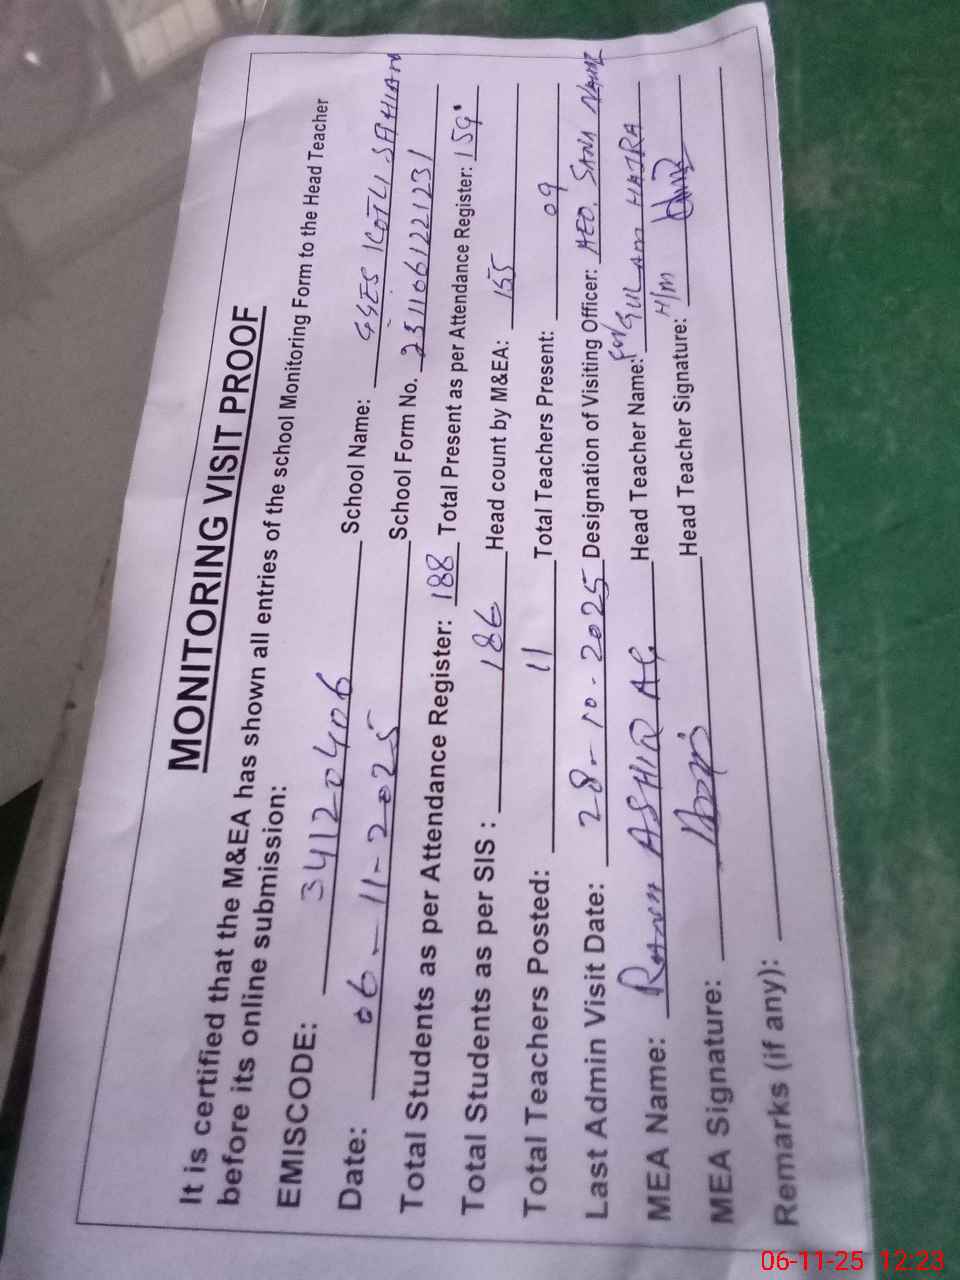 MONITORING VISIT PROOF
It is certified that the M&EA has shown all entries of the school Monitoring Form to the Head Teacher
before its online submission:
EMISCODE: 34120406 School Name: GGES KOTLI SAHIAN
Date: 06-11-2025 School Form No. 231106122131
Total Students as per Attendance Register: 188 Total Present as per Attendance Register: 159
Total Students as per SIS: 186 Head count by M&EA: 155
Total Teachers Posted: 11 Total Teachers Present: 09
Last Admin Visit Date: 28-10-2025 Designation of Visiting Officer: AEO.
MEA Name: RANA ASHIQ Head Teacher Name: GULAM HAJRA
MEA Signature: Head Teacher Signature: H/M
Remarks (if any):
06-11-25 12:23